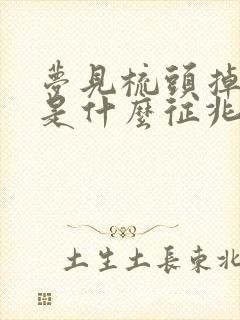 夢見梳頭掉
是什麼征兆
土生土長東北